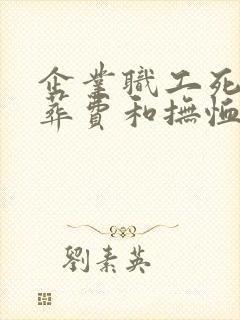 企業職工死
葬費和撫恤
劉素英